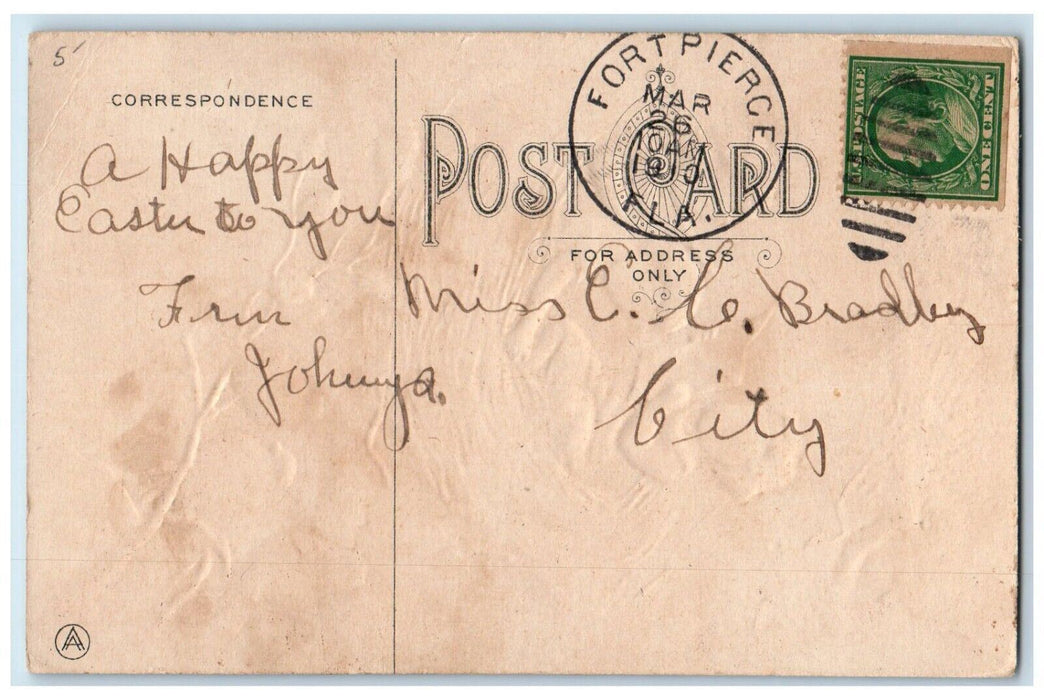 5
CORRESPONDENCE
A Happy
Easter to you
From
Johnny
POST CARD
FOR ADDRESS
ONLY
FORT PIERCE
MAR
26
10AM
1910
FLA.
U.S. POSTAGE
ONE CENT
Miss C. C. Bradley
City
AA